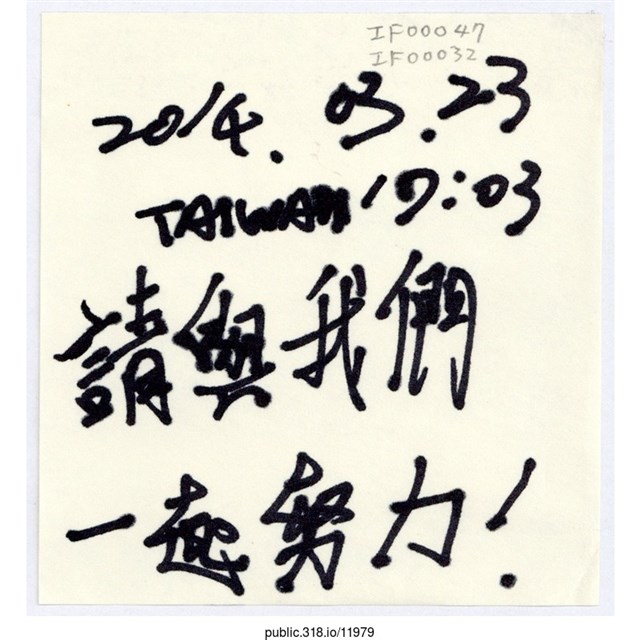 IF00047
IF00032
2014. 03. 23
TAIWAN 17:03
請與我們
一起努力!
public.318.io/11979